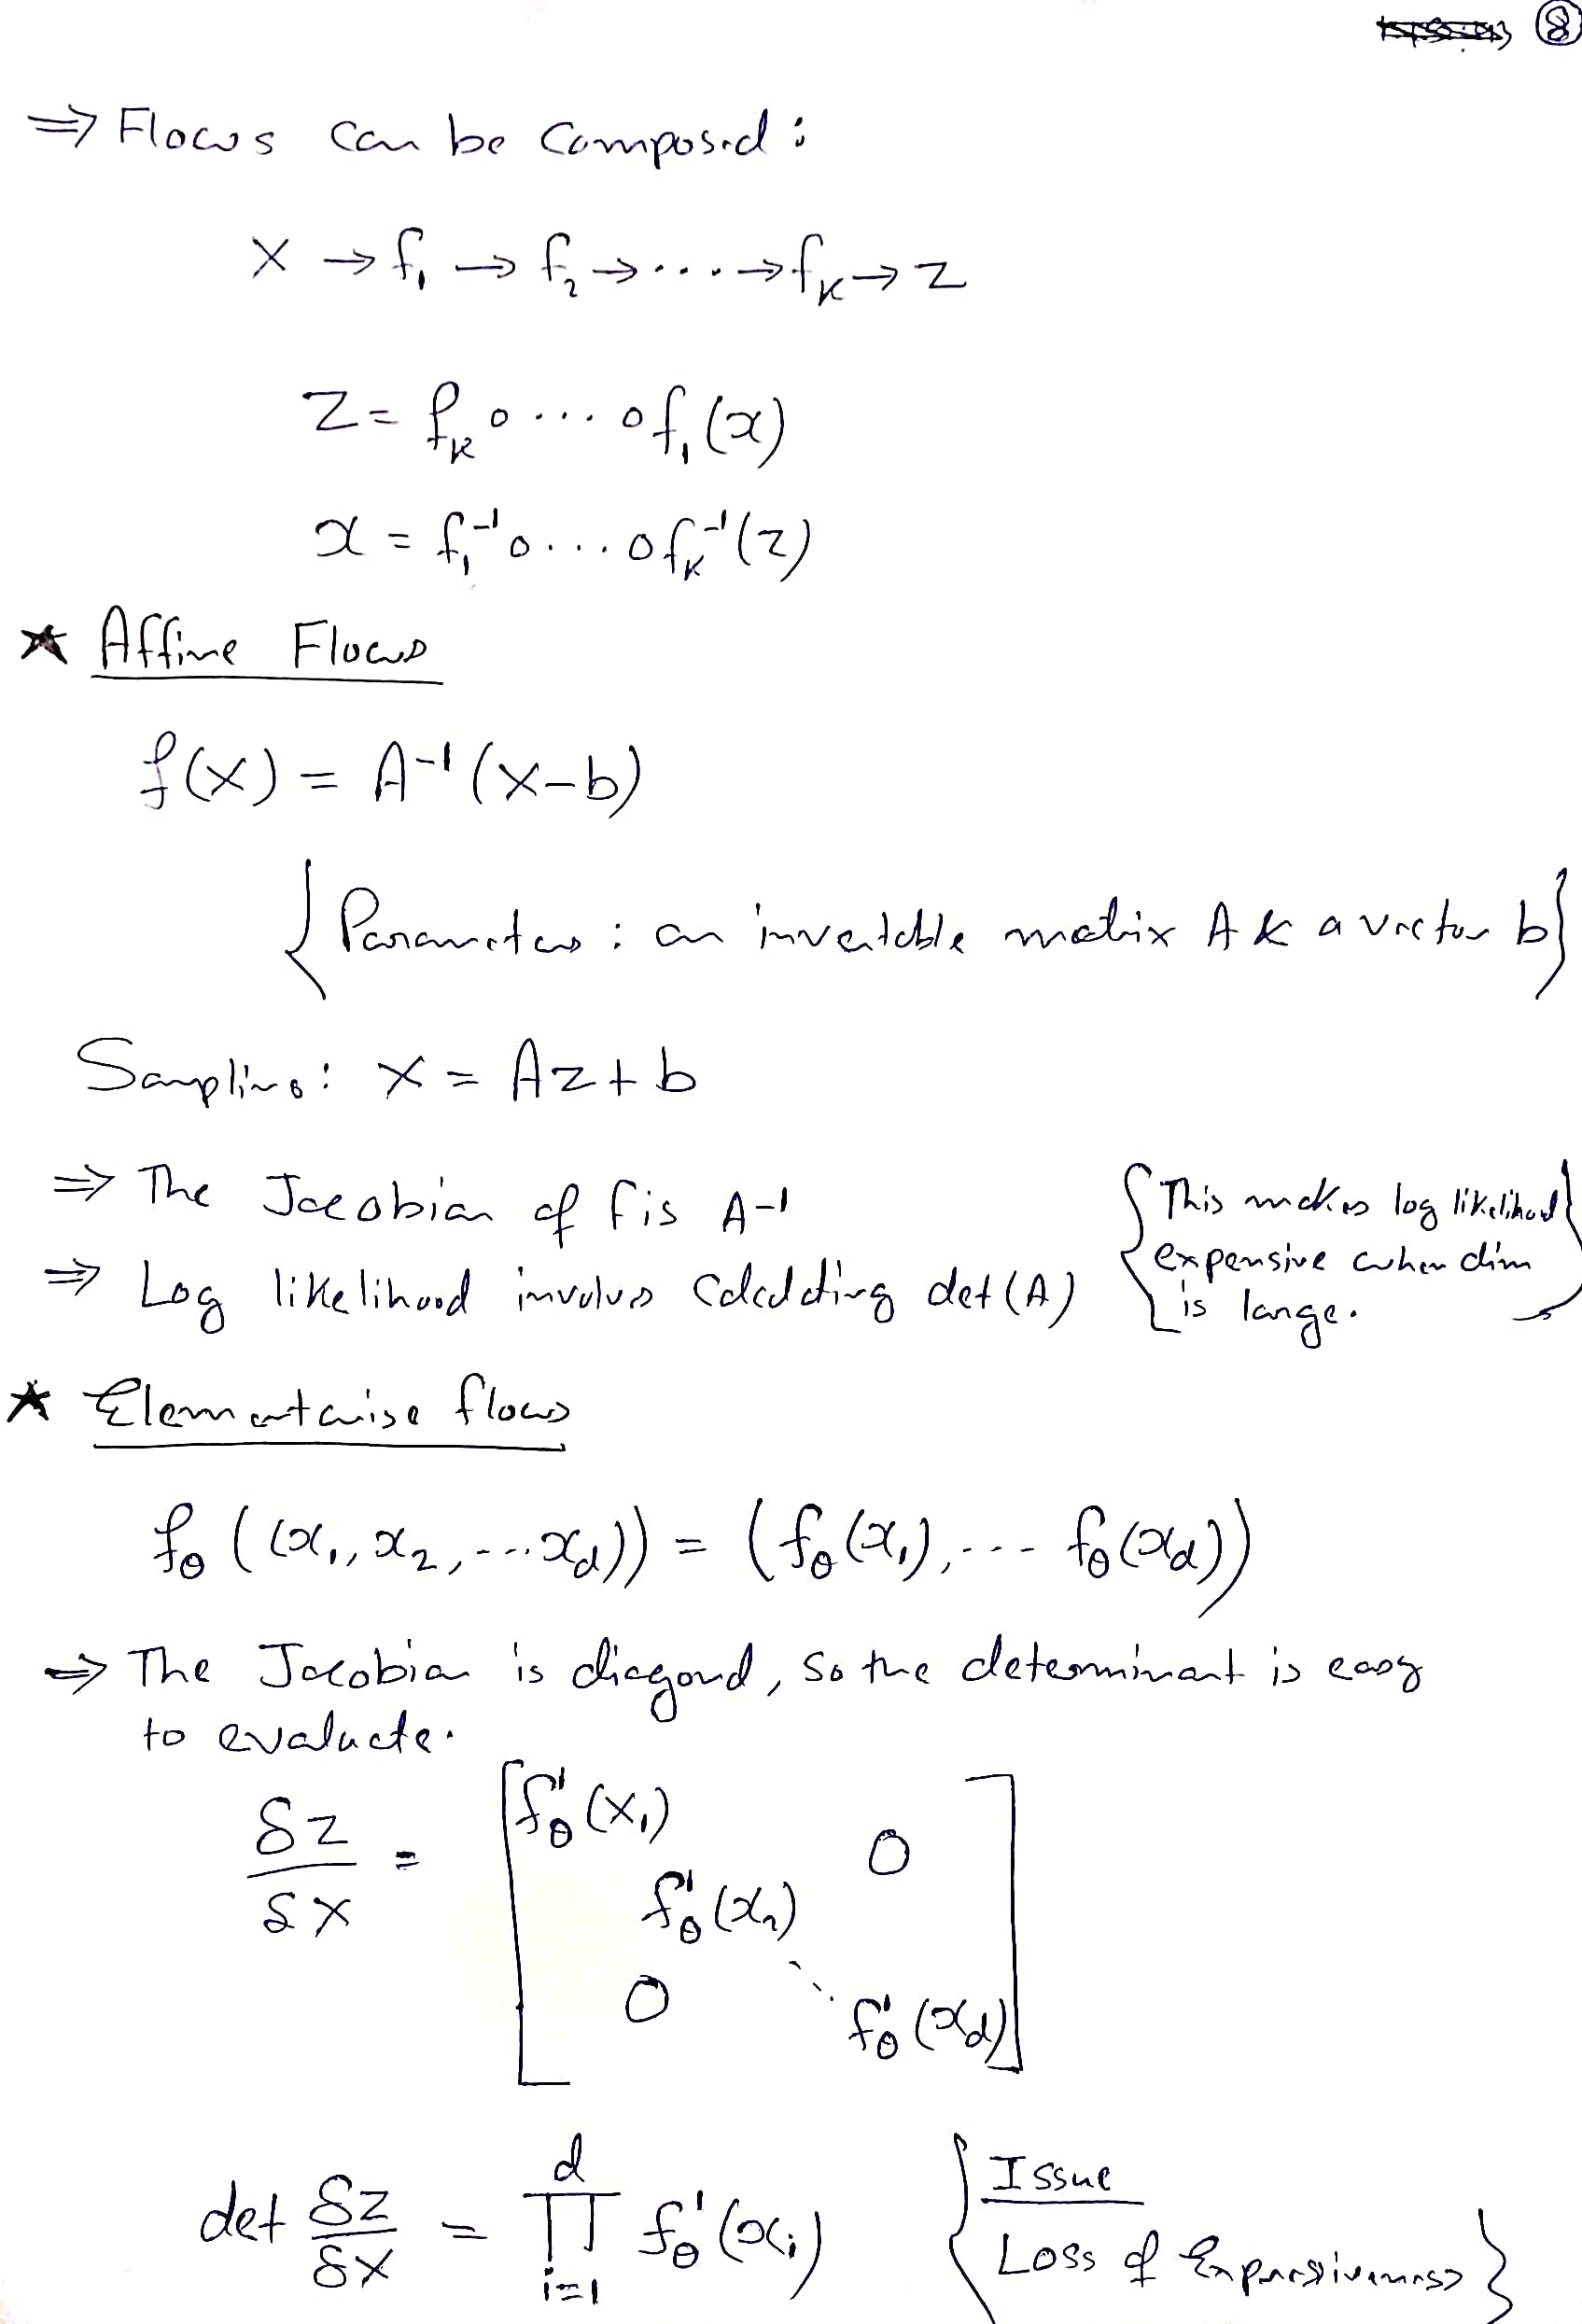 ⑧
⇒ Flows can be composed :
X → f₁ → f₂ → .... → fₖ → Z
Z = fₖ ∘ ... ∘ f₁(x)
x = f₁⁻¹ ∘ ... ∘ fₖ⁻¹(z)
★ Affine Flows
f(x) = A⁻¹(x-b)
{Parameters : an invertible matrix A & a vector b}
Sampling: x = Az + b
⇒ The Jacobian of f is A⁻¹
⇒ Log likelihood involves calculating det(A)
{This makes log likelihood
expensive when dim
is large.}
★ Elementwise flows
f_θ((x₁, x₂, ... x_d)) = (f_θ(x₁), ... f_θ(x_d))
⇒ The Jacobian is diagonal, so the determinant is easy
to evaluate.
δz/δx = [f'_θ(x₁) 0
f'_θ(x₂)
0 ⋱ f'_θ(x_d)]
det δz/δx = ∏_{i=1}^{d} f'_θ(x_i)
{Issue
Loss of Expressiveness}